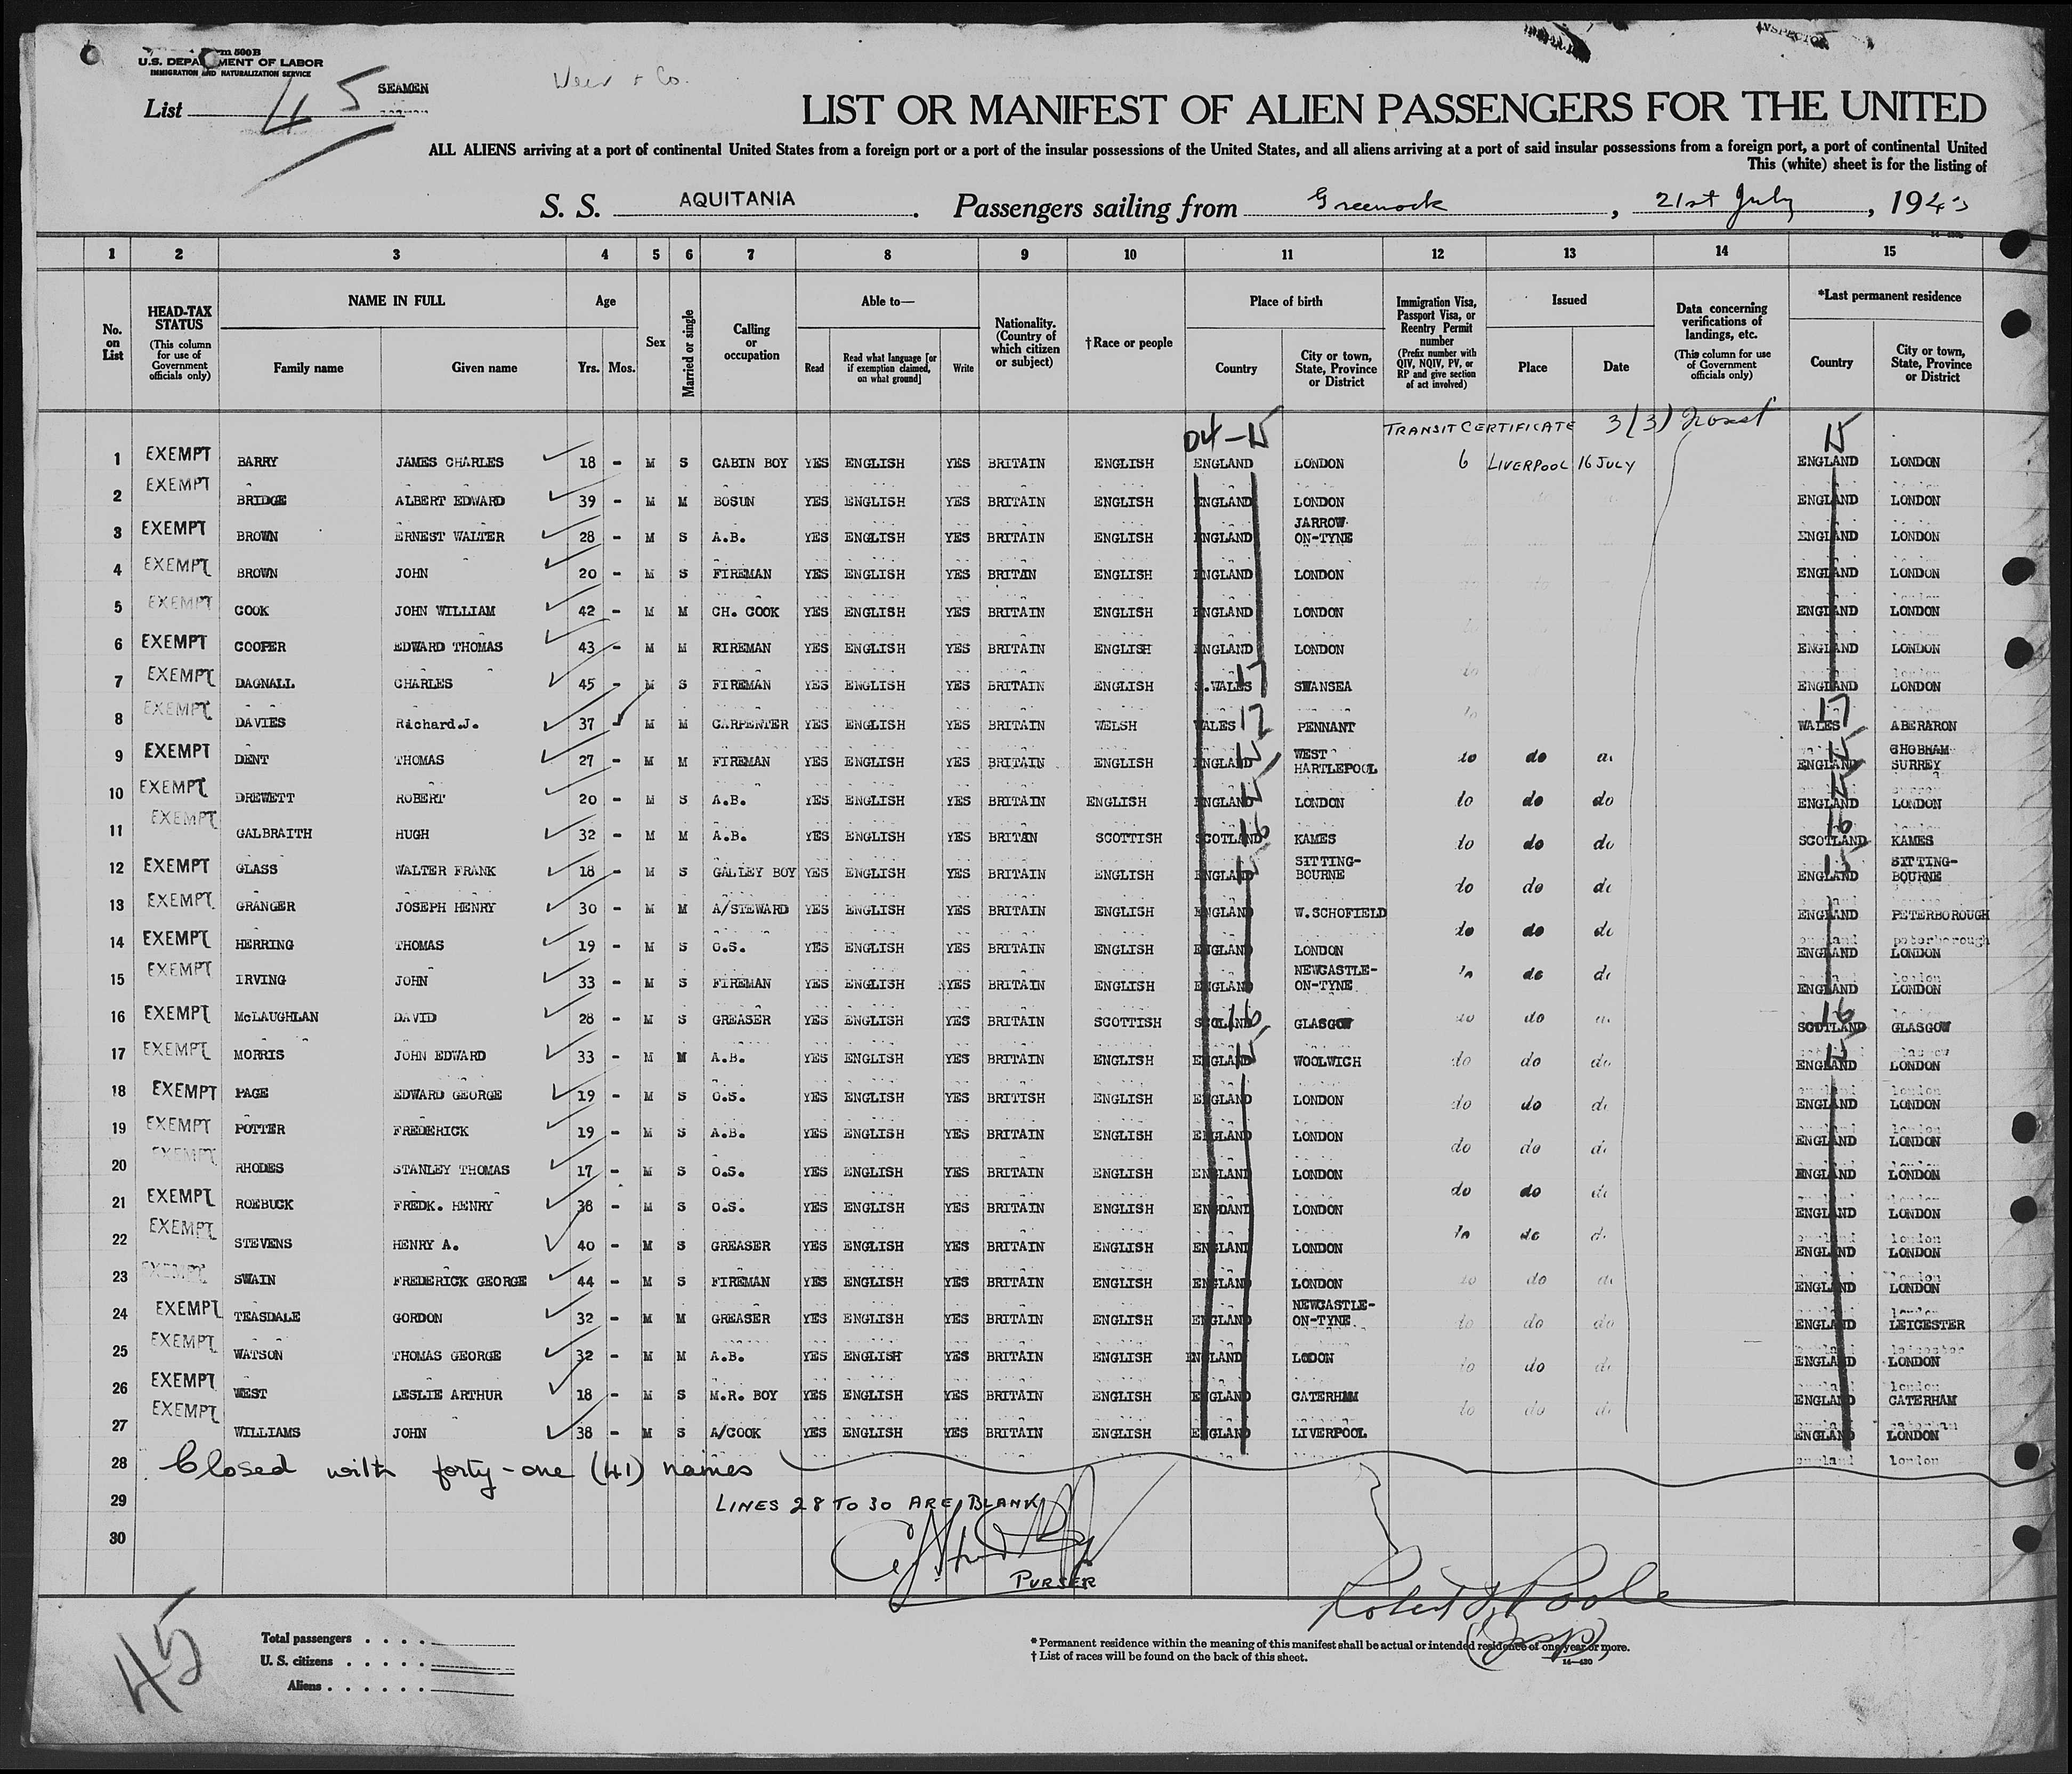 m 500 B
U.S. DEPA MENT OF LABOR
IMMIGRATION AND NATURALIZATION SERVICE
SEAMEN
List 45
Weir & Co.
LIST OR MANIFEST OF ALIEN PASSENGERS FOR THE UNITED
ALL ALIENS arriving at a port of continental United States from a foreign port or a port of the insular possessions of the United States, and all aliens arriving at a port of said insular possessions from a foreign port, a port of continental United
This (white) sheet is for the listing of
S. S. AQUITANIA . Passengers sailing from Greenock , 21st July , 194
1 2 3 4 5 6 7 8 9 10 11 12 13 14 15
No. on List
HEAD-TAX STATUS (This column for use of Government officials only)
NAME IN FULL Family name Given name
Age Yrs. Mos.
Sex
Married or single
Calling or occupation
Able to— Read Read what language [or if exemption claimed, on what ground] Write
Nationality. (Country of which citizen or subject)
†Race or people
Place of birth Country City or town, State, Province or District
Immigration Visa, Passport Visa, or Reentry Permit number (Prefix number with QIV, NQIV, PV, or RP and give section of act involved)
Issued Place Date
Data concerning verifications of landings, etc. (This column for use of Government officials only)
*Last permanent residence Country City or town, State, Province or District
04-15 TRANSIT CERTIFICATE 3(3) 15
1 EXEMPT BARRY JAMES CHARLES 18 - M S CABIN BOY YES ENGLISH YES BRITAIN ENGLISH ENGLAND LONDON 6 LIVERPOOL 16 JULY ENGLAND LONDON
2 EXEMPT BRIDGE ALBERT EDWARD 39 - M M BOSUN YES ENGLISH YES BRITAIN ENGLISH ENGLAND LONDON ENGLAND LONDON
3 EXEMPT BROWN ERNEST WALTER 28 - M S A.B. YES ENGLISH YES BRITAIN ENGLISH ENGLAND JARROW-ON-TYNE ENGLAND LONDON
4 EXEMPT BROWN JOHN 20 - M S FIREMAN YES ENGLISH YES BRITAN ENGLISH ENGLAND LONDON ENGLAND LONDON
5 EXEMPT COOK JOHN WILLIAM 42 - M M CH. COOK YES ENGLISH YES BRITAIN ENGLISH ENGLAND LONDON ENGLAND LONDON
6 EXEMPT COOPER EDWARD THOMAS 43 - M M RIREMAN YES ENGLISH YES BRITAIN ENGLISH ENGLAND LONDON ENGLAND LONDON
7 EXEMPT DAGNALL CHARLES 45 - M S FIREMAN YES ENGLISH YES BRITAIN ENGLISH S.WALES 17 SWANSEA ENGLAND LONDON
8 EXEMPT DAVIES Richard.J. 37 - M M CARPENTER YES ENGLISH YES BRITAIN WELSH WALES 17 PENNANT WALES 17 ABERARON
9 EXEMPT DENT THOMAS 27 - M M FIREMAN YES ENGLISH YES BRITAIN ENGLISH ENGLAND 15 WEST HARTLEPOOL do do ENGLAND 15 CHOBHAM SURREY
10 EXEMPT DREWETT ROBERT 20 - M S A.B. YES ENGLISH YES BRITAIN ENGLISH ENGLAND 15 LONDON do do do ENGLAND 15 LONDON
11 EXEMPT GALBRAITH HUGH 32 - M M A.B. YES ENGLISH YES BRITAN SCOTTISH SCOTLAND 16 KAMES do do do SCOTLAND 16 KAMES
12 EXEMPT GLASS WALTER FRANK 18 - M S GALLEY BOY YES ENGLISH YES BRITAIN ENGLISH ENGLAND 15 SITTING-BOURNE do do do ENGLAND 15 SITTING-BOURNE
13 EXEMPT GRANGER JOSEPH HENRY 30 - M M A/STEWARD YES ENGLISH YES BRITAIN ENGLISH ENGLAND W.SCHOFIELD do do do ENGLAND PETERBOROUGH
14 EXEMPT HERRING THOMAS 19 - M S O.S. YES ENGLISH YES BRITAIN ENGLISH ENGLAND LONDON do do ENGLAND LONDON
15 EXEMPT IRVING JOHN 33 - M S FIREMAN YES ENGLISH YES BRITAIN ENGLISH ENGLAND NEWCASTLE-ON-TYNE do do ENGLAND LONDON
16 EXEMPT McLAUGHLAN DAVID 28 - M S GREASER YES ENGLISH YES BRITAIN SCOTTISH 16 GLASGOW do do SCOTLAND 16 GLASGOW
17 EXEMPT MORRIS JOHN EDWARD 33 - M M A.B. YES ENGLISH YES BRITAIN ENGLISH ENGLAND 15 WOOLWICH do do do ENGLAND 15 LONDON
18 EXEMPT PAGE EDWARD GEORGE 19 - M S O.S. YES ENGLISH YES BRITISH ENGLISH ENGLAND LONDON do do ENGLAND LONDON
19 EXEMPT POTTER FREDERICK 19 - M S A.B. YES ENGLISH YES BRITAIN ENGLISH ENGLAND LONDON do do ENGLAND LONDON
20 EXEMPT RHODES STANLEY THOMAS 17 - M S O.S. YES ENGLISH YES BRITAIN ENGLISH ENGLAND LONDON do do ENGLAND LONDON
21 EXEMPT ROEBUCK FREDK. HENRY 38 - M S O.S. YES ENGLISH YES BRITAIN ENGLISH LONDON do do ENGLAND LONDON
22 EXEMPT STEVENS HENRY A. 40 - M S GREASER YES ENGLISH YES BRITAIN ENGLISH ENGLAND LONDON do do ENGLAND LONDON
23 EXEMPT SWAIN FREDERICK GEORGE 44 - M S FIREMAN YES ENGLISH YES BRITAIN ENGLISH ENGLAND LONDON do do ENGLAND LONDON
24 EXEMPT TEASDALE GORDON 32 - M M GREASER YES ENGLISH YES BRITAIN ENGLISH ENGLAND NEWCASTLE-ON-TYNE do do do ENGLAND LEICESTER
25 EXEMPT WATSON THOMAS GEORGE 32 - M M A.B. YES ENGLISH YES BRITAIN ENGLISH ENGLAND LODON do do ENGLAND LONDON
26 EXEMPT WEST LESLIE ARTHUR 18 - M S M.R. BOY YES ENGLISH YES BRITAIN ENGLISH ENGLAND CATERHAM do do ENGLAND CATERHAM
27 EXEMPT WILLIAMS JOHN 38 - M S A/COOK YES ENGLISH YES BRITAIN ENGLISH ENGLAND LIVERPOOL ENGLAND LONDON
28 Closed with forty-one (41) names england london
29 LINES 28 TO 30 ARE BLANK
30
PURSER
Robert J. Poole
45
Total passengers
U. S. citizens
Aliens
* Permanent residence within the meaning of this manifest shall be actual or intended residence of one year or more.
† List of races will be found on the back of this sheet.